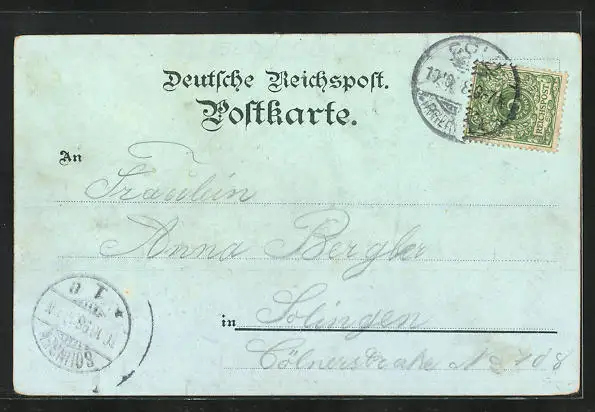 Deutsche Reichspost.
Postkarte.
REICHSPOST
An
Fräulein
Anna Bergler
in Solingen
Cölnerstraße No 108
SOLINGEN